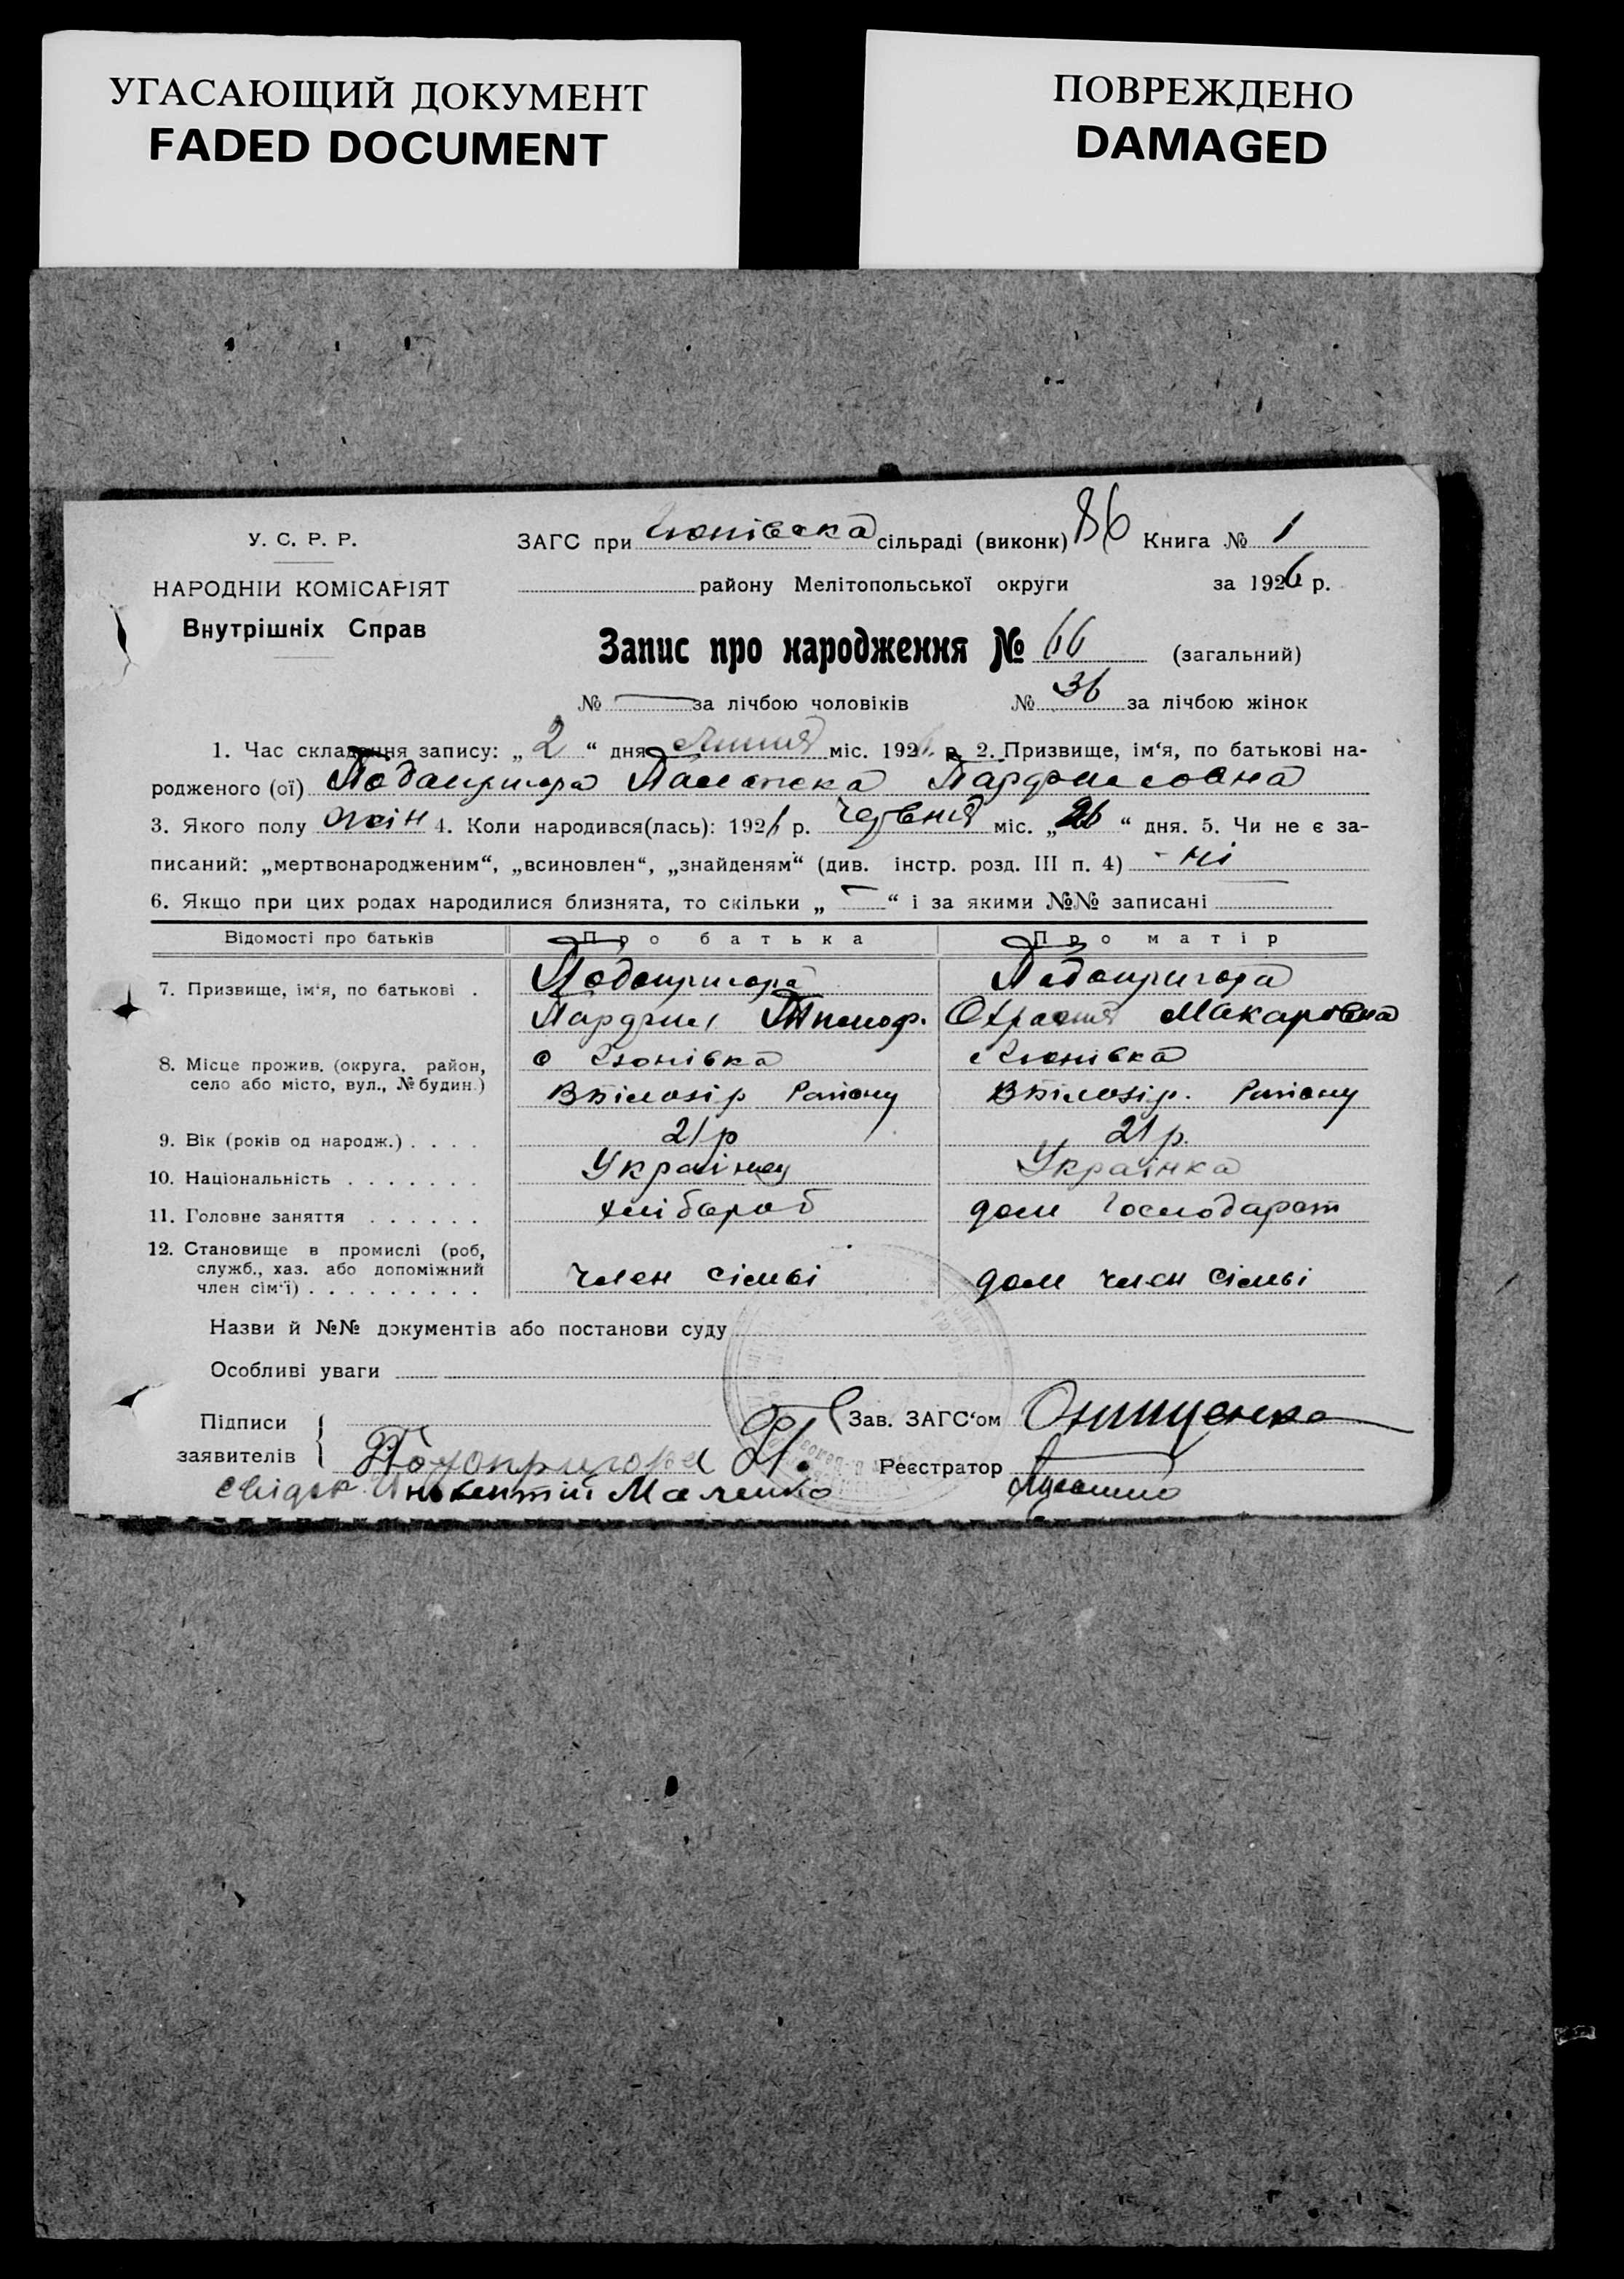 УГАСАЮЩИЙ ДОКУМЕНТ
FADED DOCUMENT
ПОВРЕЖДЕНО
DAMAGED
У. С. Р. Р.
НАРОДНІИ КОМІСАРІЯТ
Внутрішніх Справ
ЗАГС при сільраді (виконк) 86 Книга № 1
району Мелітопольської округи за 1926 р.
Запис про народження № 66 (загальний)
№ — за лічбою чоловіків № 36 за лічбою жінок
1. Час складення запису: „ 2 “ дня Липня міс. 1926 р. 2. Призвище, ім‘я, по батькові на-
родженого (ої) Подопригора Пармоновна
3. Якого полу жін 4. Коли народився(лась): 1926 р. червня міс. „ 26 “ дня. 5. Чи не є за-
писаний: „мертвонародженим“, „всиновлен“, „знайденям“ (див. інстр. розд. III п. 4) - ні
6. Якщо при цих родах народилися близнята, то скільки „ — “ і за якими №№ записані
Відомості про батьків Про батька Про матір
7. Призвище, ім‘я, по батькові . Подопригора Подопригора
Макаровна
8. Місце прожив. (округа, район,
село або місто, вул., № будин.)
ВБілозір Району ВБілозір. Району
9. Вік (років од народж.) . . . . 21 р 21 р.
10. Національність . . . . . . . Українец Українка
11. Головне заняття . . . . . . хлібороб дом Господарст
12. Становище в промислі (роб,
служб., хаз. або допоміжний
член сім‘ї) . . . . . . . . . член сімьі дом член сімьі
Назви й №№ документів або постанови суду
Особливі уваги
Підписи
заявителів
Подопригора П.
свідок Инокентій Маленко
Зав. ЗАГС‘ом Онищенко
Реєстратор